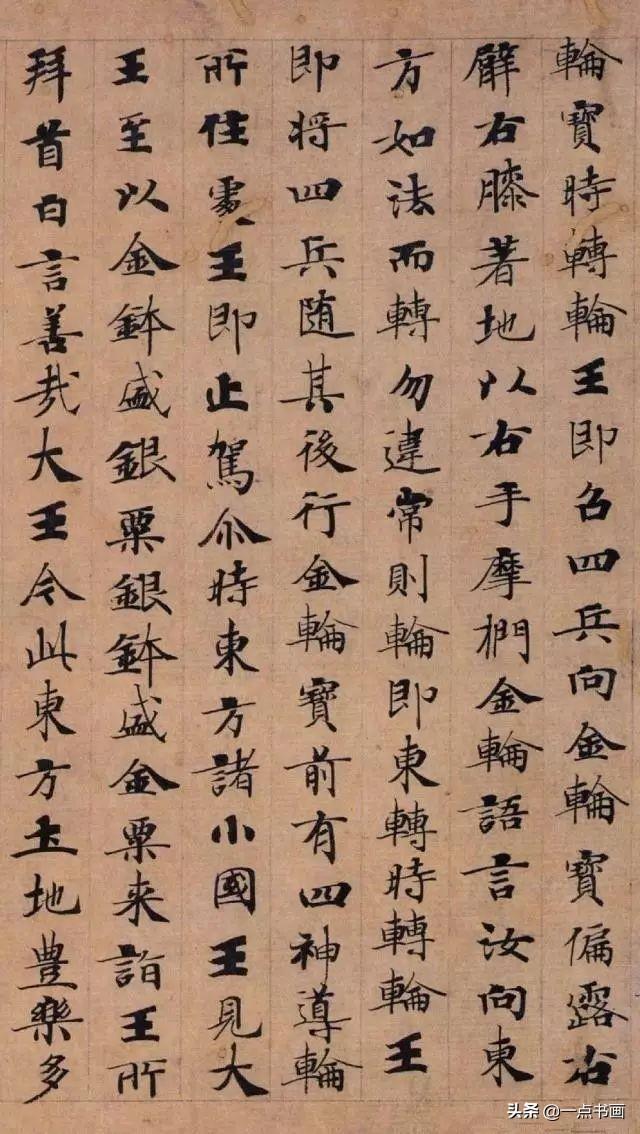 輪寶時轉輪王即召四兵向金輪寶偏露右
臂右膝著地以右手摩捫金輪語言汝向東
方如法而轉勿違常則輪即東轉時轉輪王
即將四兵随其後行金輪寶前有四神導輪
所住處王即止駕尒時東方諸小國王見大
王至以金鉢盛銀粟銀鉢盛金粟来詣王所
拜首白言善哉大王今此東方土地豊樂多
头条@一点书画